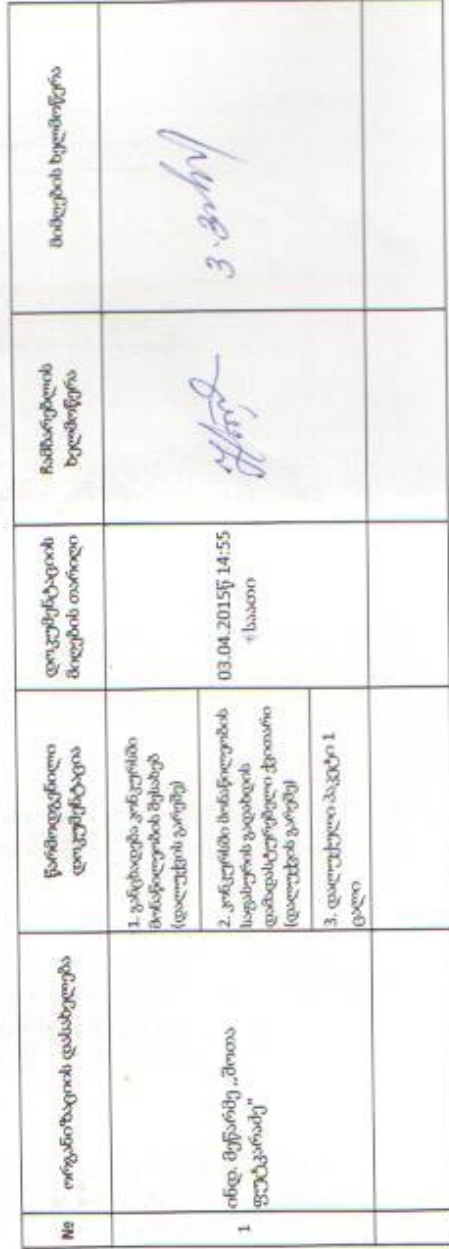 №
ორგანიზაციის დასახელება
წარმოდგენილი
დოკუმენტაცია
დოკუმენტაციის
მიღების თარიღი
ჩამბარებლის
ხელმოწერა
მიმღების ხელმოწერა
1
ინდ. მეწარმე „შოთა
ფუტკარაძე"
1. განცხადება კონკურსში
მონაწილეობის შესახებ
(დალუქვის გარეშე)
2. კონკურსში მონაწილეობის
საფასურის გადახდის
დამადასტურებელი ქვითარი
(დალუქვის გარეშე)
3. დალუქული პაკეტი 1
ცალი
03.04.2015წ 14:55
საათი